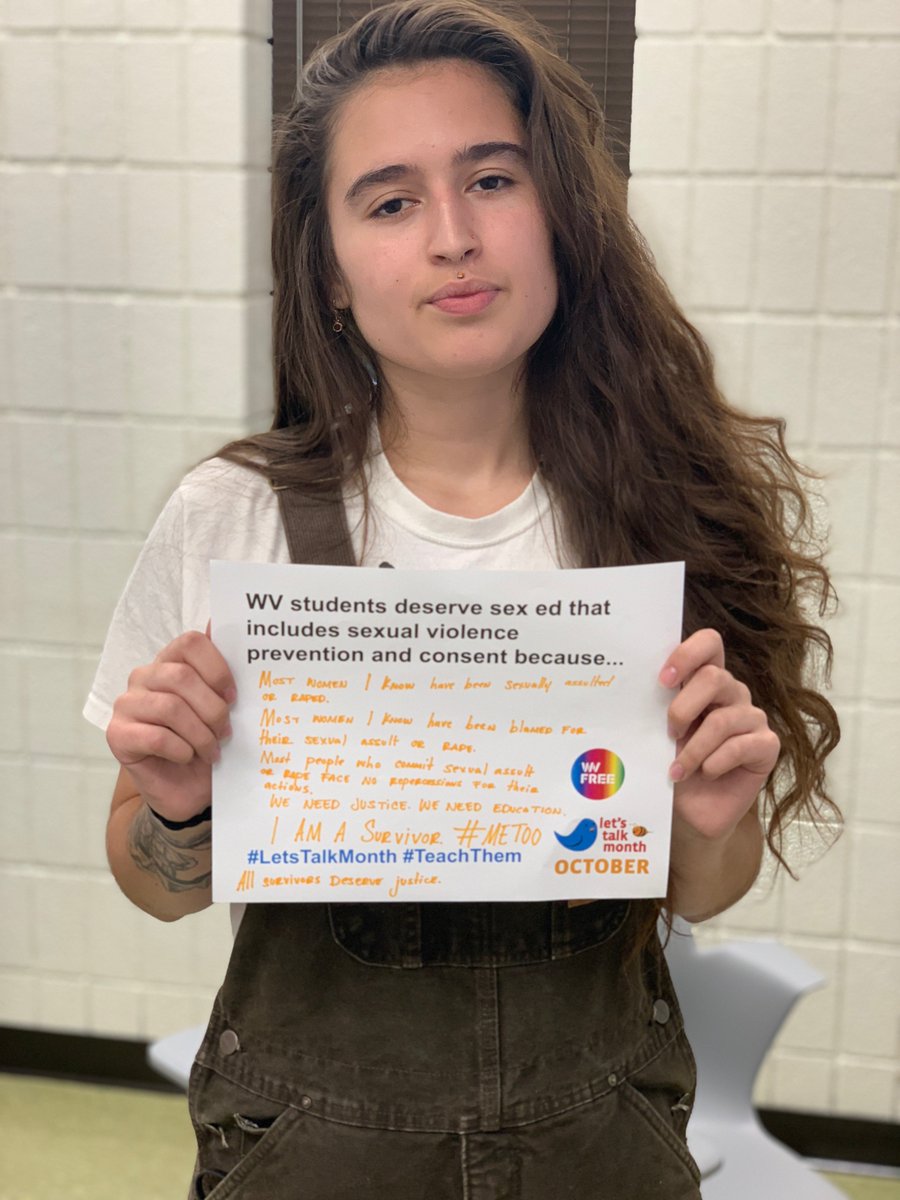 WV students deserve sex ed that
includes sexual violence
prevention and consent because...
MOST WOMEN I KNOW HAVE BEEN SEXUALLY ASSULTED
OR RAPED.
MOST WOMEN I KNOW HAVE BEEN BLAMED FOR
their SEXUAL ASSULT OR RAPE.
Most people who commit sexual assult
OR RAPE FACE NO REPERCUSSIONS FOR their
actions.
WE NEED JUSTICE. WE NEED EDUCATION.
I AM A SURVIVOR. #METOO
#LetsTalkMonth #TeachThem
All survivors Deserve justice.
WV
FREE
let's
talk
month
OCTOBER